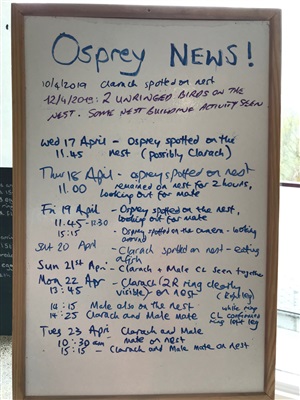 Osprey NEWS!
10/4/2019 Clarach spotted on nest
12/4/2019: 2 UNRINGED BIRDS ON THE
NEST. SOME NEST BUILDING ACTIVITY SEEN
Wed 17 April - Osprey spotted on the
11.45 nest (possibly Clarach)
Thur 18 April - osprey spotted on nest
11.00 remained on nest for 2 hours,
looking out for mate
Fri 19 April - Osprey spotted on the nest,
11.45-11:30 looking out for mate
15:15 - Osprey spotted on the camera - looking
around
Sat 20 April
- Clarach spotted on nest - eating
a fish
Sun 21st Apri - Clarach + Male CL seen together
Mon 22 Apr - Clarach (2R ring clearly
13:45 visible) on nest (Right leg)
14:15 Male also on the nest white ring
14:25 Clarach and Male mate CL confirmed
ring left leg
Tues 23 April Clarach and Male
10:30am mate on nest
15:15 - Clarach and Male mate on nest